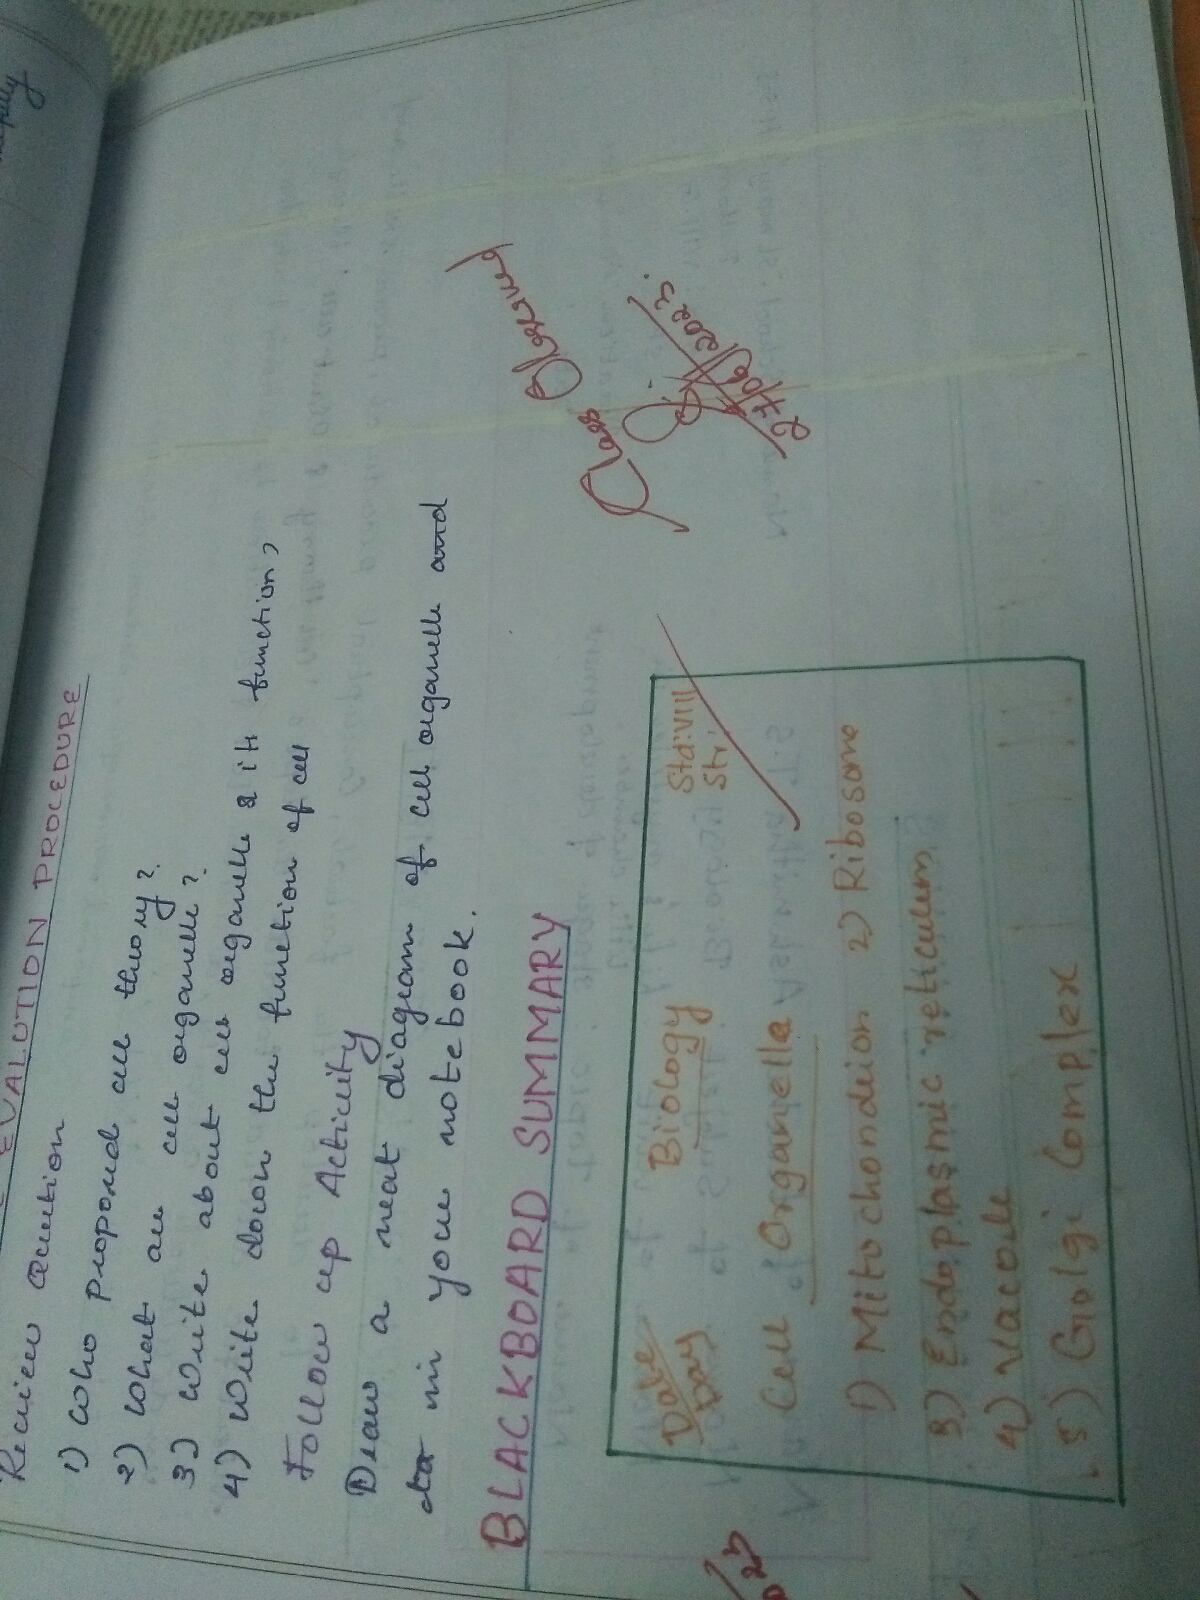 EVALUTION PROCEDURE
Review Question
1) Who proposed cell theory?
2) What are cell organelle?
3) Write about cell organelle & it function?
4) Write down the function of cell
Follow up Activity
Draw a neat diagram of cell organelle and
in your notebook.
BLACKBOARD SUMMARY
Date Biology Std:VIII
Day Str:
Cell of Organella
1) Mitochondrion 2) Ribosome
3) Endoplasmic reticulum
4) Vacoule
5) Golgi Complex
Class Observed
27/06/2023.